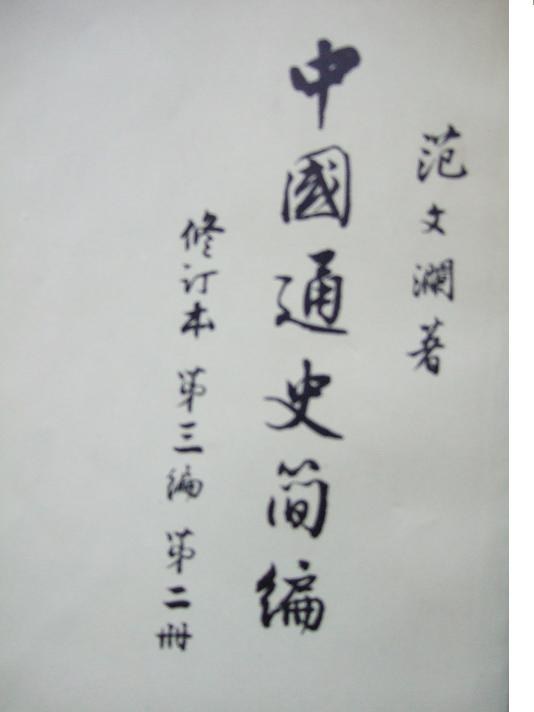 范文瀾著
中國通史简編
修订本 第三编 第二册